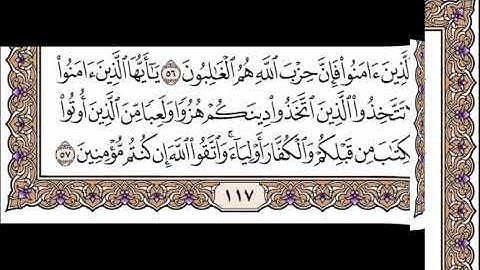 لَّذِينَ ءَامَنُوا۟ فَإِنَّ حِزْبَ ٱللَّهِ هُمُ ٱلْغَـٰلِبُونَ ٥٦ يَـٰٓأَيُّهَا ٱلَّذِينَ ءَامَنُوا۟
تَتَّخِذُوا۟ ٱلَّذِينَ ٱتَّخَذُوا۟ دِينَكُمْ هُزُوًا وَلَعِبًا مِّنَ ٱلَّذِينَ أُوتُوا۟
كِتَـٰبَ مِن قَبْلِكُمْ وَٱلْكُفَّارَ أَوْلِيَآءَ ۚ وَٱتَّقُوا۟ ٱللَّهَ إِن كُنتُم مُّؤْمِنِينَ ٥٧
١١٧